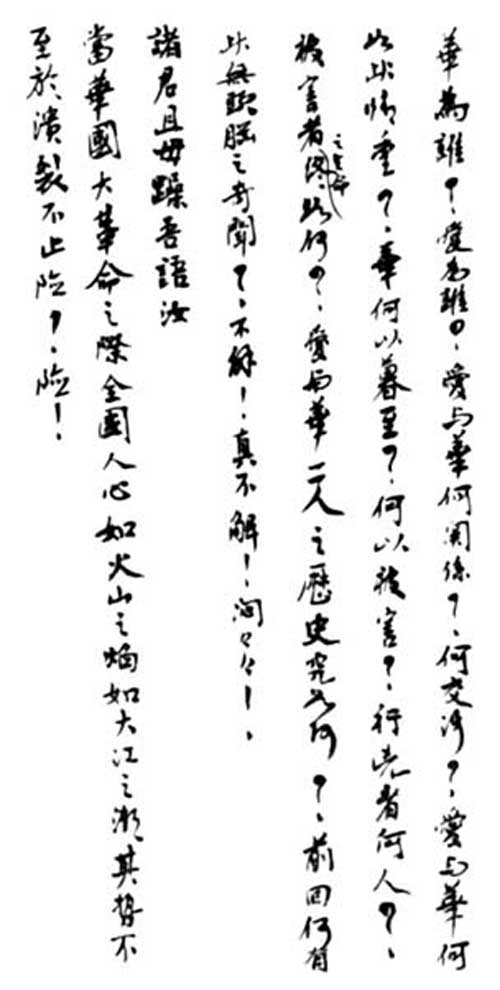 華為誰?愛為誰?愛与華何関係?何交渉?愛与華何
以此情重?華何以暮至?何以被害?行兇者何人?
被害者之生命終如何?愛与華二人之歷史究如何?前回何有
此無頭腦之奇聞?不解!真不解!悶々々!
諸君且毋躁吾語汝
當華國大革命之際全國人心如火山之焰如大江之潮其勢不
至於潰裂不止险?险!